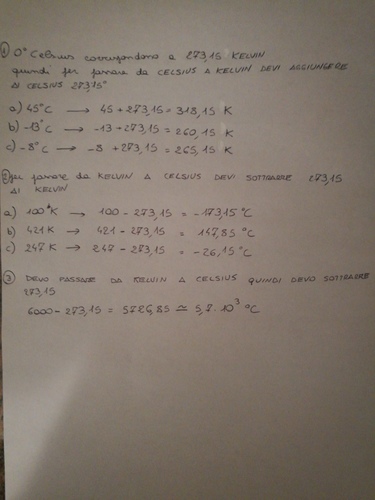 ① 0° Celsius corrispondono a 273,15 KELVIN
quindi per passare da CELSIUS A KELVIN DEVI AGGIUNGERE
AI CELSIUS 273,15°
a) 45°C → 45 + 273,15 = 318,15 K
b) -13°C → -13 + 273,15 = 260,15 K
c) -8°C → -8 + 273,15 = 265,15 K
② per passare da KELVIN A CELSIUS DEVI SOTTRARRE 273,15
AI KELVIN
a) 100 K → 100 - 273,15 = -173,15 °C
b) 421 K → 421 - 273,15 = 147,85 °C
c) 247 K → 247 - 273,15 = -26,15 °C
③ DEVO PASSARE DA KELVIN A CELSIUS QUINDI DEVO SOTTRARRE
273,15
6000 - 273,15 = 5726,85 ≃ 5,7 · 10³ °C